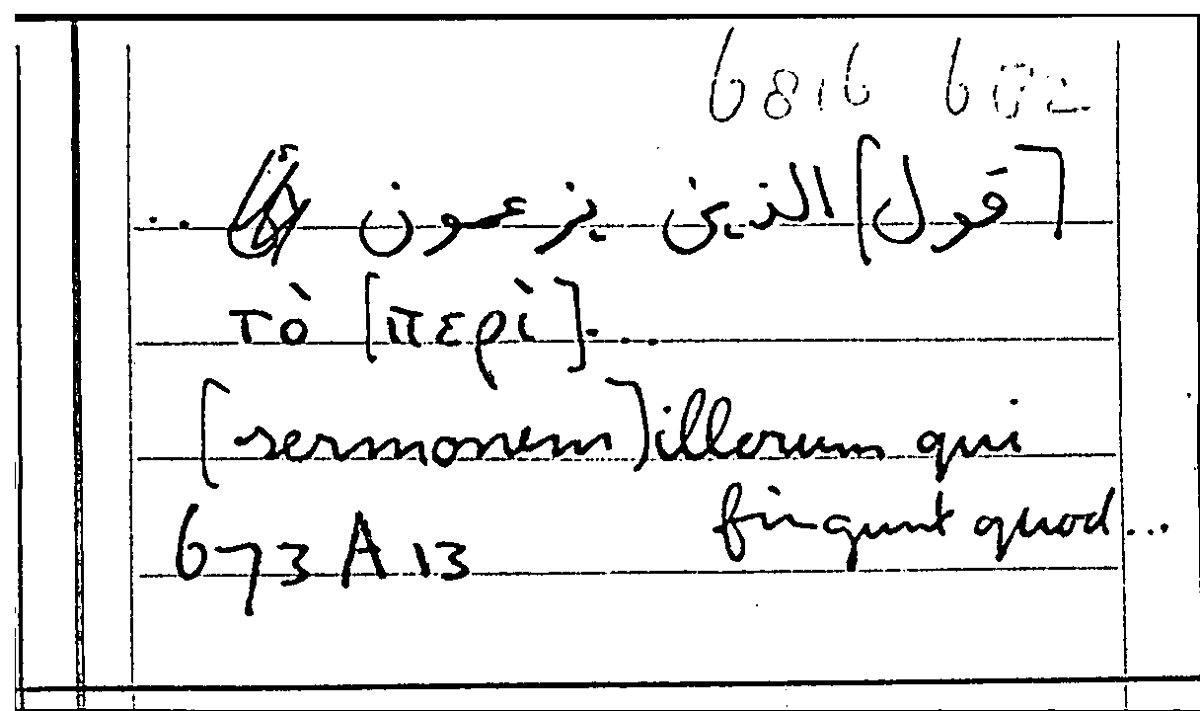 6816
[قول] الذين يزعمون ...
τὸ [περὶ]....
[sermonem] illorum qui
fingunt quod...
673 A 13